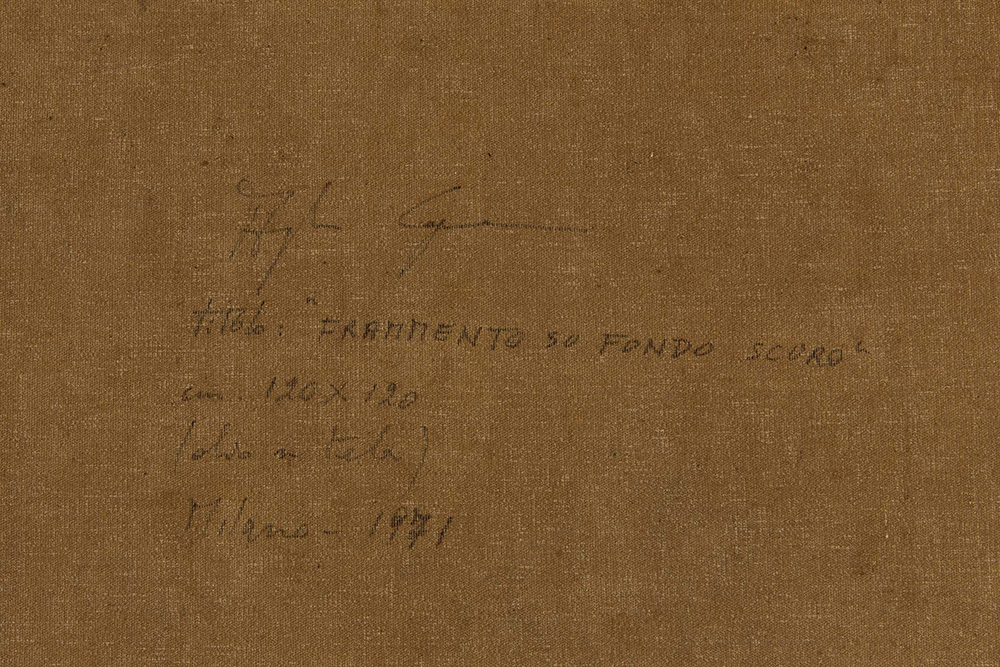 titolo: "FRAMMENTO SU FONDO SCURO"
cm. 120 X 120
(olio su tela)
Milano - 1971